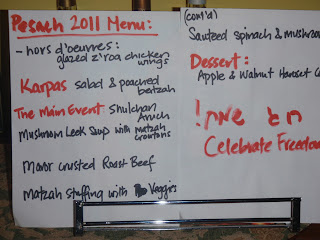 Pesach 2011 Menu:
- hors d'oeuvres:
glazed z'roa chicken
wings
Karpas salad & poached
beitzah
The Main Event: Shulchan
Aruch
Mushroom Leek Soup with matzah
croutons
Maror crusted Roast Beef
Matzah stuffing with Veggies
(cont'd)
Sauteed spinach & mushroo
Dessert:
Apple & Walnut Haroset C
חג שמח!
Celebrate Freedom